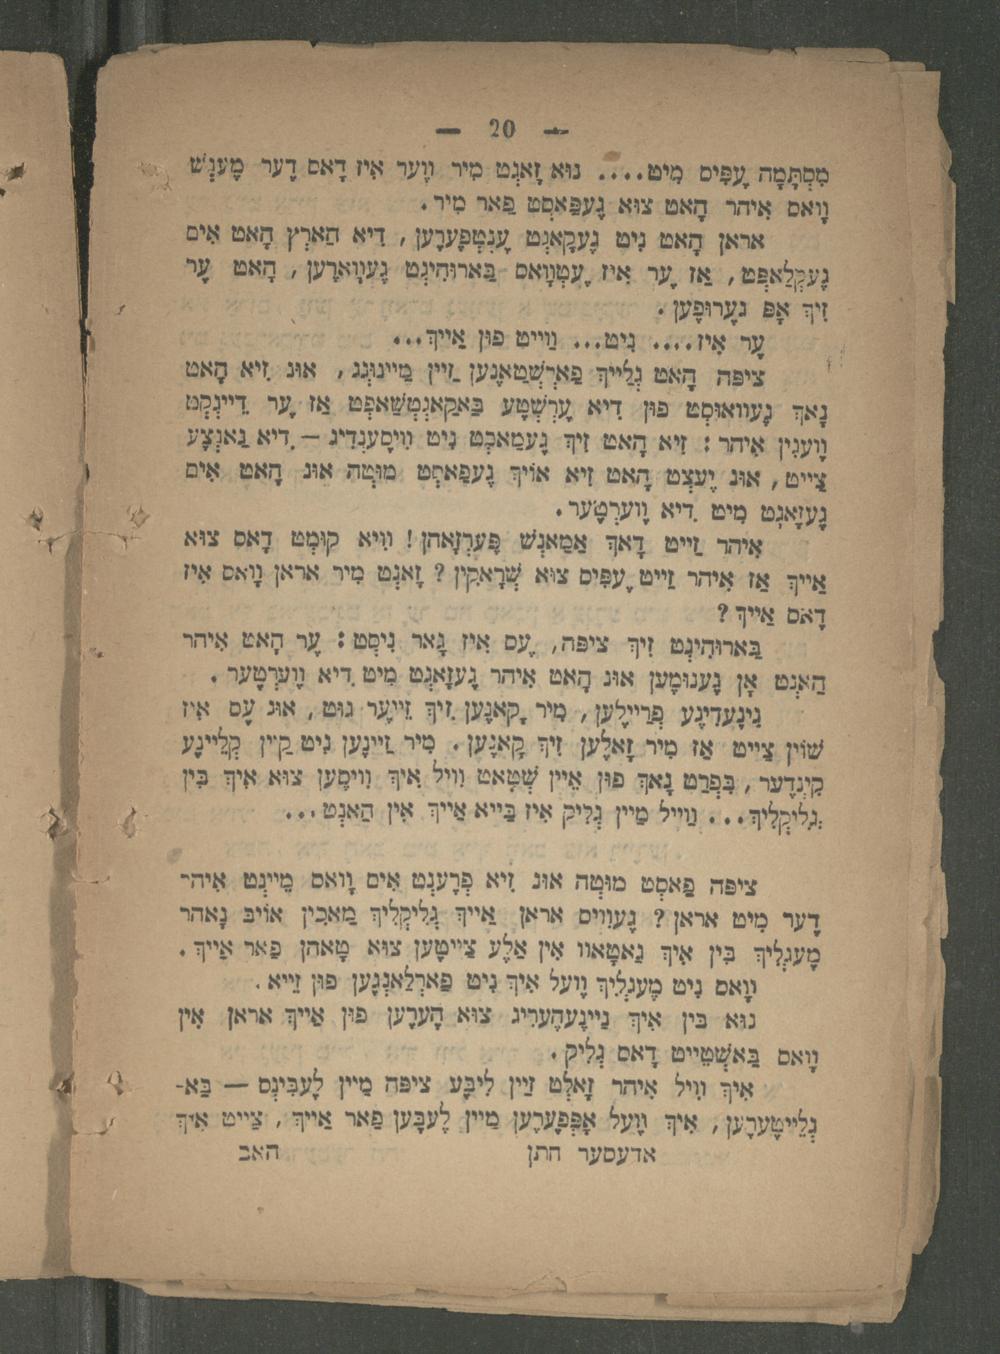 — 20 —
מִסְתָּמָה עֶפִּיס מִיט.... נוּא זָאגְט מִיר וֶוער אִיז דָאס דֶער מֶענְשׁ
וָואס אִיהר הָאט צוּא גֶעפַּאסְט פַאר מִיר.
אראן הָאט נִיט גֶעקָאנְט עֶנְטְפֶערֶען, דִיא הַארְץ הָאט אִים
גֶעקְלַאפְּט, אַז עֶר אִיז עֶטְוָואס בַּארוּהִיגְט גֶעוָוארֶען, הָאט עֶר
זִיךְ אָפּ גֶערוּפֶען.
עֶר אִיז.... נִיט... וַוייט פוּן אַייךְ...
ציפּה הָאט גְלַייךְ פַארְשְׁטַאנֶען זַיין מַיינוּנְג, אוּנ זִיא הָאט
נָאךְ גֶעוואוּסְט פוּן דִיא עֶרְשְׁטֶע בַּאקַאנְטְשַׁאפְט אַז עֶר דֵיינְקְט
וֶועגִין אִיהר: זִיא הָאט זִיךְ גֶעמַאכְט נִיט וִויסֶענְדִיג — דִיא גַאנְצֶע
צַייט, אוּנ יֶעצְט הָאט זִיא אוֹיךְ גֶעפַאסְט מוּטְה אוּנ הָאט אִים
גֶעזָאגְט מִיט דִיא וֶוערְטֶער.
אִיהר זַייט דָאךְ אַמַאנְשׁ פֶּערְזָאהן! וִויא קוּמְט דָאס צוּא
אַייךְ אַז אִיהר זַייט עֶפִּיס צוּא שְׁרָאקִין? זָאגְט מִיר אראן וָואס אִיז
דָאס אַייךְ?
בַּארוּהִיגְט זִיךְ ציפּה, עֶס אִיז גָאר נִיסְט: עֶר הָאט אִיהר
הַאנְט אָן גֶענוּמֶען אוּנ הָאט אִיהר גֶעזָאגְט מִיט דִיא וֶוערְטֶער.
גִינֶעדִיגֶע פְרַיילֶען, מִיר קָאנֶען זִיךְ זֵייעֶר גוּט, אוּנ עֶס אִיז
שׁוֹין צַייט אַז מִיר זָאלֶען זִיךְ קָאנֶען. מִיר זַיינֶען נִיט קֵיין קְלֵיינֶע
קִינְדֶער, בִּפְרַט נָאךְ פוּן אֵיין שְׁטָאט וִויל אִיךְ וִויסֶען צוּא אִיךְ בִּין
גְלִיקְלִיךְ... וַוייל מַיין גְלִיק אִיז בַּייא אַייךְ אִין הַאנְט...
ציפּה פַאסְט מוּטְה אוּנ זִיא פְרֶעגְט אִים וָואס מֵיינְט אִיהר
דֶער מִיט אראן? גֶעוִויס אראן אַייךְ גְלִיקְלִיךְ מַאכִין אוֹיבּ נָאהר
מֶעגְלִיךְ בִּין אִיךְ גַאטָאוו אִין אַלֶע צַייטֶען צוּא טָאהן פַאר אַייךְ.
וָואס נִיט מֶעגְלִיךְ וֶועל אִיךְ נִיט פַארְלַאנְגֶען פוּן זַייא.
נוּא בִּין אִיךְ נַייגֶעהֶערִיג צוּא הֶערֶען פוּן אַייךְ אראן אִין
וָואס בַּאשְׁטֵייט דָאס גְלִיק.
אִיךְ וִויל אִיהר זָאלְט זַיין לִיבֶּע ציפּה מַיין לֶעבִּינְס — בַּא-
גְלֵייטֶערֶען, אִיךְ וֶועל אָפְּפֶּערֶען מַיין לֶעבֶּען פַאר אַייךְ, צַייט אִיךְ
אדעסער חתן האב